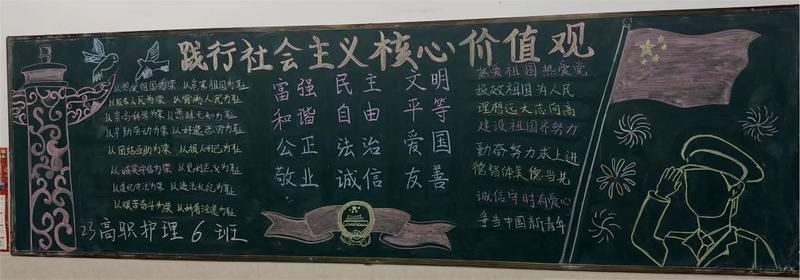 践行社会主义核心价值观
以热爱祖国为荣 以危害祖国为耻
以服务人民为荣 以背离人民为耻
以崇尚科学为荣 以愚昧无知为耻
以辛勤劳动为荣 以好逸恶劳为耻
以团结互助为荣 以损人利己为耻
以诚实守信为荣 以见利忘义为耻
以遵纪守法为荣 以违法乱纪为耻
以艰苦奋斗为荣 以骄奢淫逸为耻
23高职护理6班
富强 民主 文明
和谐 自由 平等
公正 法治 爱国
敬业 诚信 友善
热爱祖国热爱党
报效祖国为人民
理想远大志向高
建设祖国齐努力
勤奋努力求上进
德智体美德当先
诚信守时有爱心
争当中国新青年